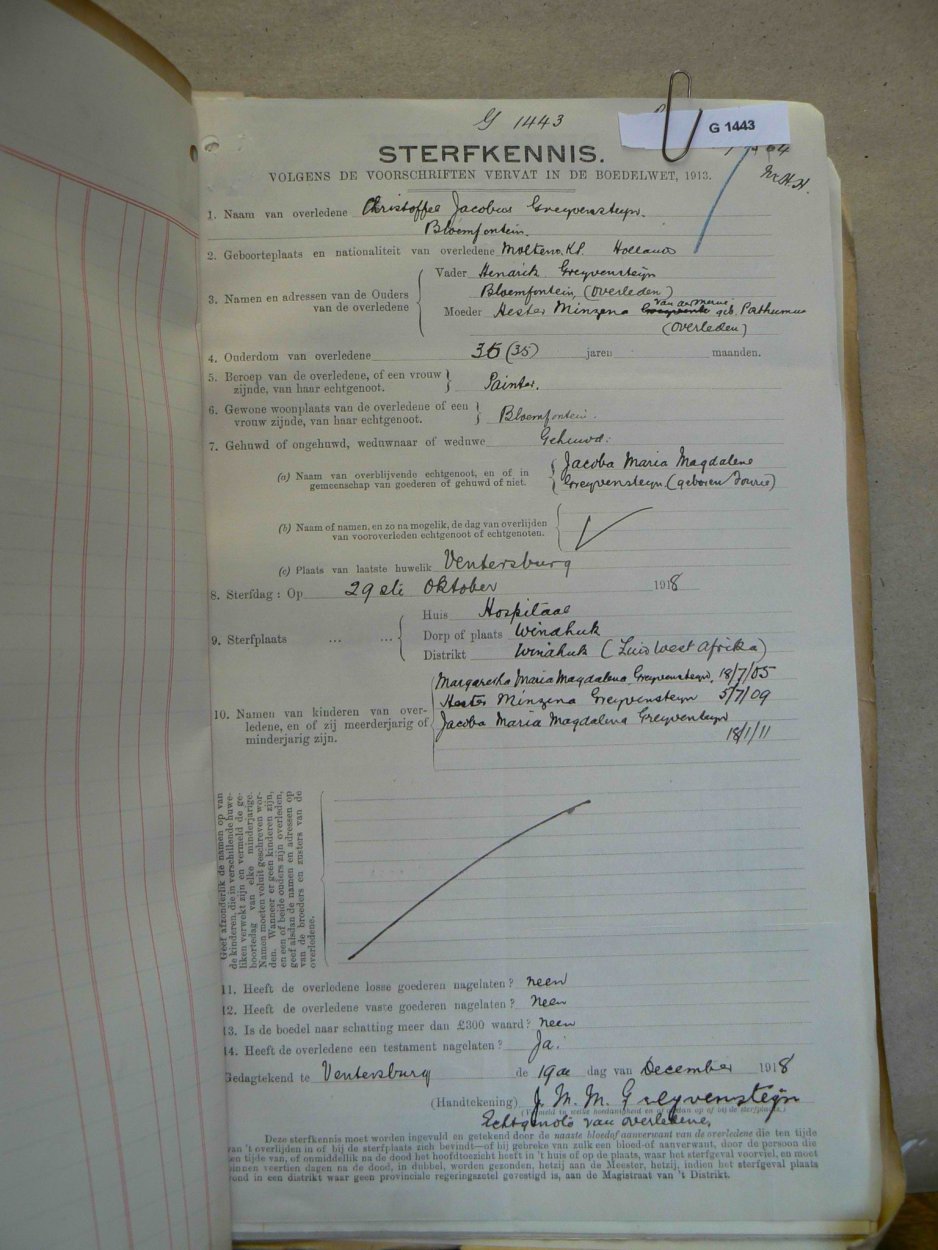 G 1443
G 1443
STERFKENNIS.
VOLGENS DE VOORSCHRIFTEN VERVAT IN DE BOEDELWET, 1913.
1. Naam van overledene Christoffel Jacobus Greyvensteyn.
Bloemfontein.
2. Geboorteplaats en nationaliteit van overledene Molteno. K.P. Hollands
3. Namen en adressen van de Ouders van de overledene
Vader Hendrik Greyvensteyn
Bloemfontein, (Overleden)
van der Merwe
Moeder Hester Minzena geb. Posthumus
(Overleden)
4. Ouderdom van overledene 35 (35) jaren maanden.
5. Beroep van de overledene, of een vrouw
zijnde, van haar echtgenoot. Painter.
6. Gewone woonplaats van de overledene of een
vrouw zijnde, van haar echtgenoot. Bloemfontein.
7. Gehuwd of ongehuwd, weduwnaar of weduwe Gehuwd:
(a) Naam van overblijvende echtgenoot, en of in
gemeenschap van goederen of gehuwd of niet.
Jacoba Maria Magdalena
Greyvensteyn (geboren Fourie)
(b) Naam of namen, en zo na mogelik, de dag van overlijden
van vooroverleden echtgenoot of echtgenoten.
(c) Plaats van laatste huwelik Ventersburg
8. Sterfdag: Op 29ste Oktober 1918
9. Sterfplaats ... ...
Huis Hospitaal
Dorp of plaats Windhuk
Distrikt Windhuk (Zuid West Afrika)
10. Namen van kinderen van over-
ledene, en of zij meerderjarig of
minderjarig zijn.
Margaretha Maria Magdalena Greyvensteyn, 18/7/05
Hester Minzena Greyvensteyn 5/7/09
Jacoba Maria Magdalena Greyvensteyn
18/1/11
Geef afzonderlik de namen op van
de kinderen, die in verschillende huwe-
liken verwekt zijn en vermeld de ge-
boortedag van elke minderjarige.
Namen moeten voluit geschreven wor-
den. Wanneer er geen kinderen zijn,
en een of beide ouders zijn overleden,
geef alsdan de namen en adressen op
van de broeders en zusters van de
overledene.
11. Heeft de overledene losse goederen nagelaten? neen
12. Heeft de overledene vaste goederen nagelaten? Neen
13. Is de boedel naar schatting meer dan £300 waard? neen
14. Heeft de overledene een testament nagelaten? Ja.
Gedagtekend te Ventersburg de 19de dag van December 1918
(Handtekening) J. M. M. Greyvensteyn
Echtgenote van overledene,
Deze sterfkennis moet worden ingevuld en getekend door de naaste bloedof aanverwant van de overledene die ten tijde
van 't overlijden in of bij de sterfplaats zich bevindt—of bij gebreke van zulk een bloed-of aanverwant, door de persoon die
ten tijde van, of onmiddellik na de dood het hoofdtoezicht heeft in 't huis of op de plaats, waar het sterfgeval voorviel, en moet
binnen veertien dagen na de dood, in dubbel, worden gezonden, hetzij aan de Meester, hetzij, indien het sterfgeval plaats
vond in een distrikt waar geen provinciale regeringszetel gevestigd is, aan de Magistraat van 't Distrikt.